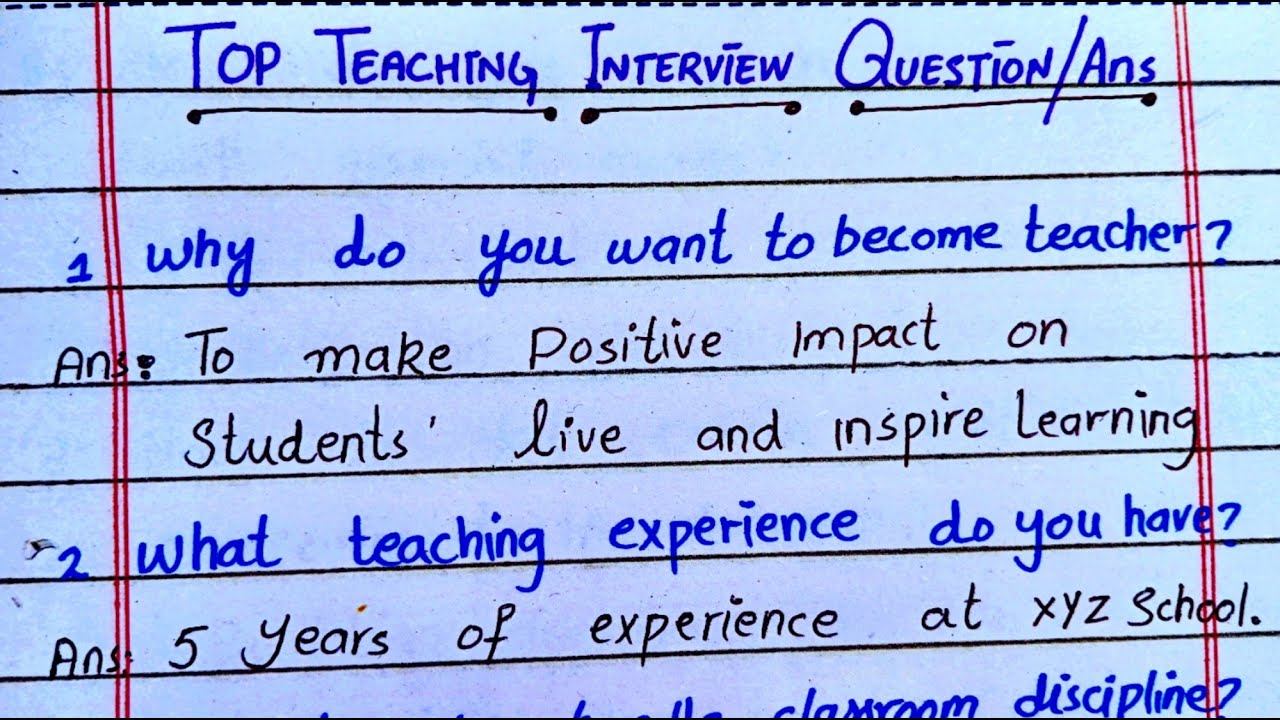 TOP TEACHING INTERVIEW QUESTION/Ans
1 why do you want to become teacher?
Ans: To make Positive Impact on
Students' live and inspire Learning
2 what teaching experience do you have?
Ans: 5 years of experience at XYZ School.
classroom discipline?